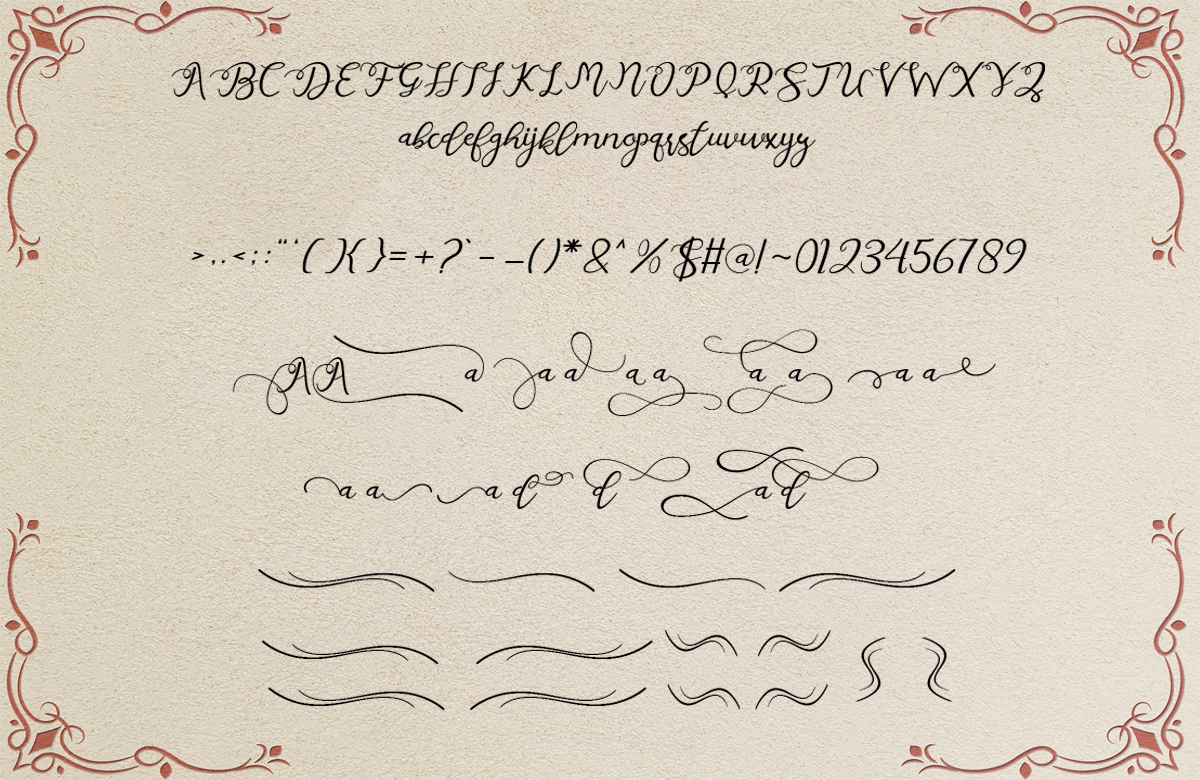 ABCDEFGHIJKLMNOPQRSTUVWXYZ
abcdefghijklmnopqrstuvwxyz
>,.<;:"'(){}=+?`-_()*&^%$#@!~0123456789
AA a aa aa aa aa
aa ad d ad